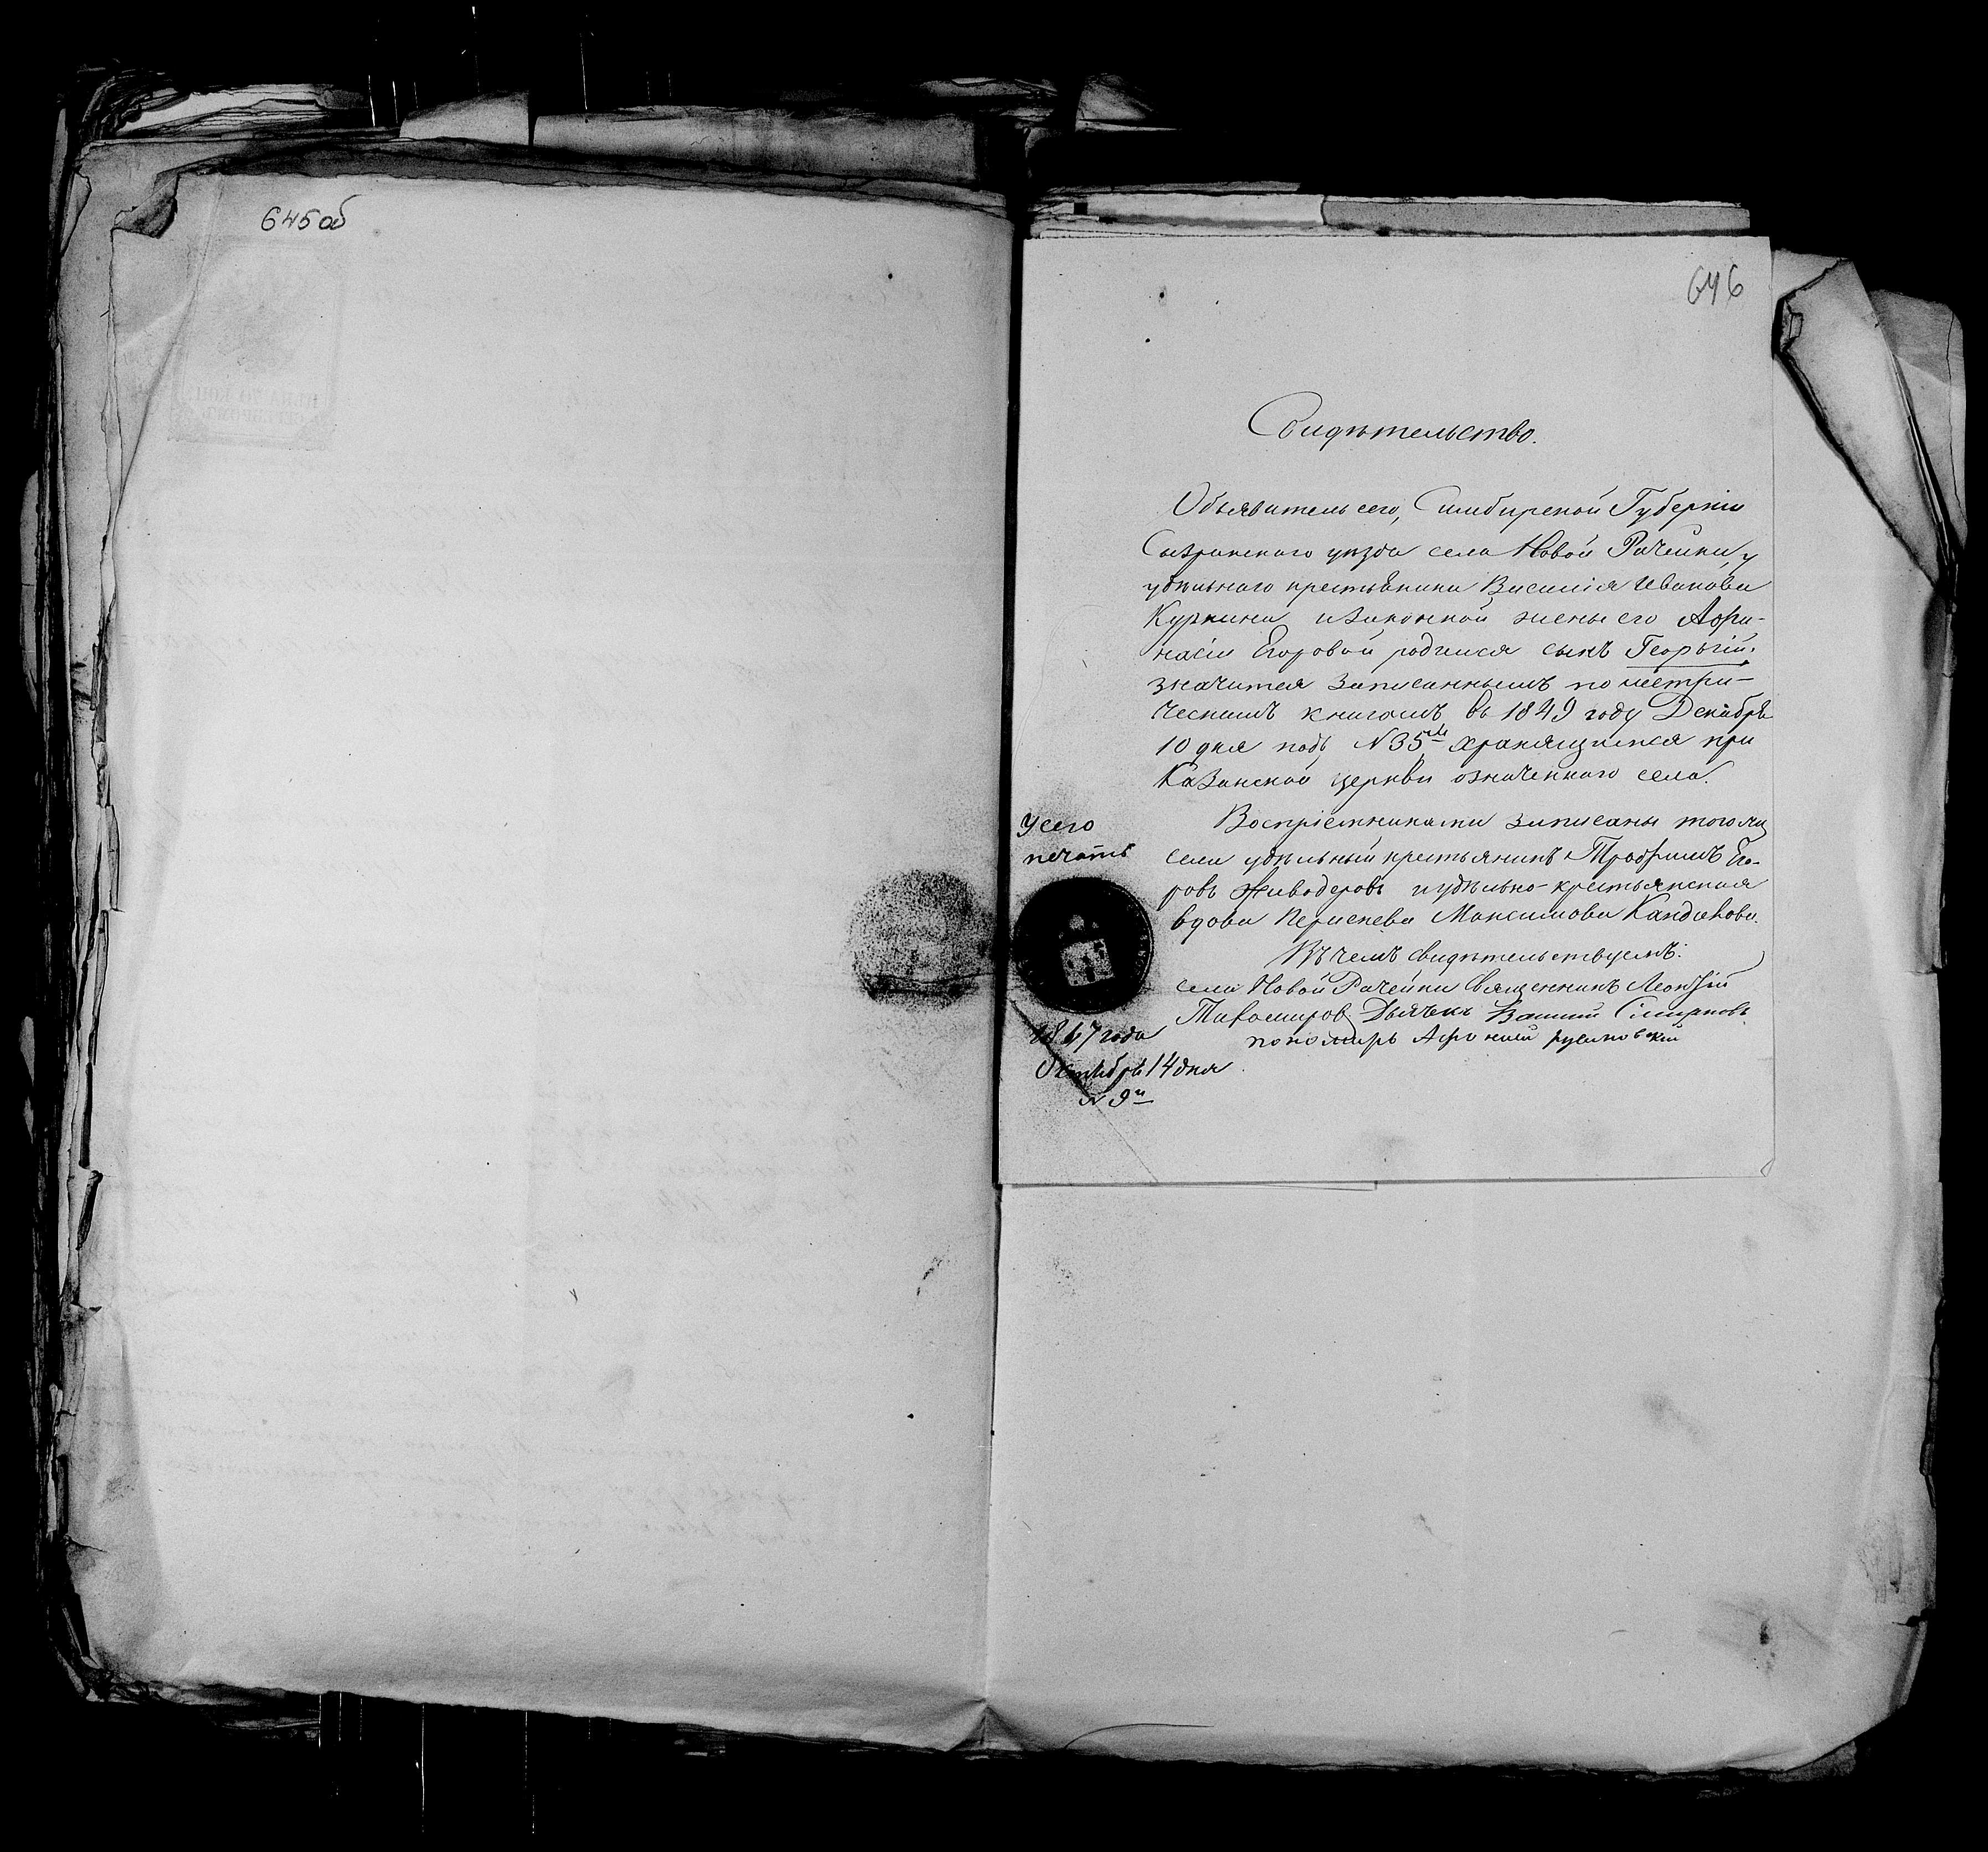 645 об
646
Свидѣтельство.
Объявитель сего, Симбирской Губерніи
Сызранскаго уѣзда села Новой Рачейки, у
удѣльнаго крестьянина Василія Иванова
Куркина и законной жены его Афа-
насіи Егоровой родился сынъ Георгій.
значится записаннымъ по метри-
ческимъ книгамъ въ 1849 году Декабря
10 дня подъ №35мъ хранящимся при
Казанской церкви означеннаго села.
Воспріемниками записаны того жъ
села удѣльный крестьянинъ Трофимъ Его-
ровъ Живодеровъ и удѣльно-крестьянская
вдова Максимова
Въ чемъ свидѣтельствуемъ:
села Новой Рачейки Священникъ Леонтій
Тихомировъ Дьячекъ Смирновъ
пономарь
У сего
печать
1867 года
Октября 14 дня
№ 9й